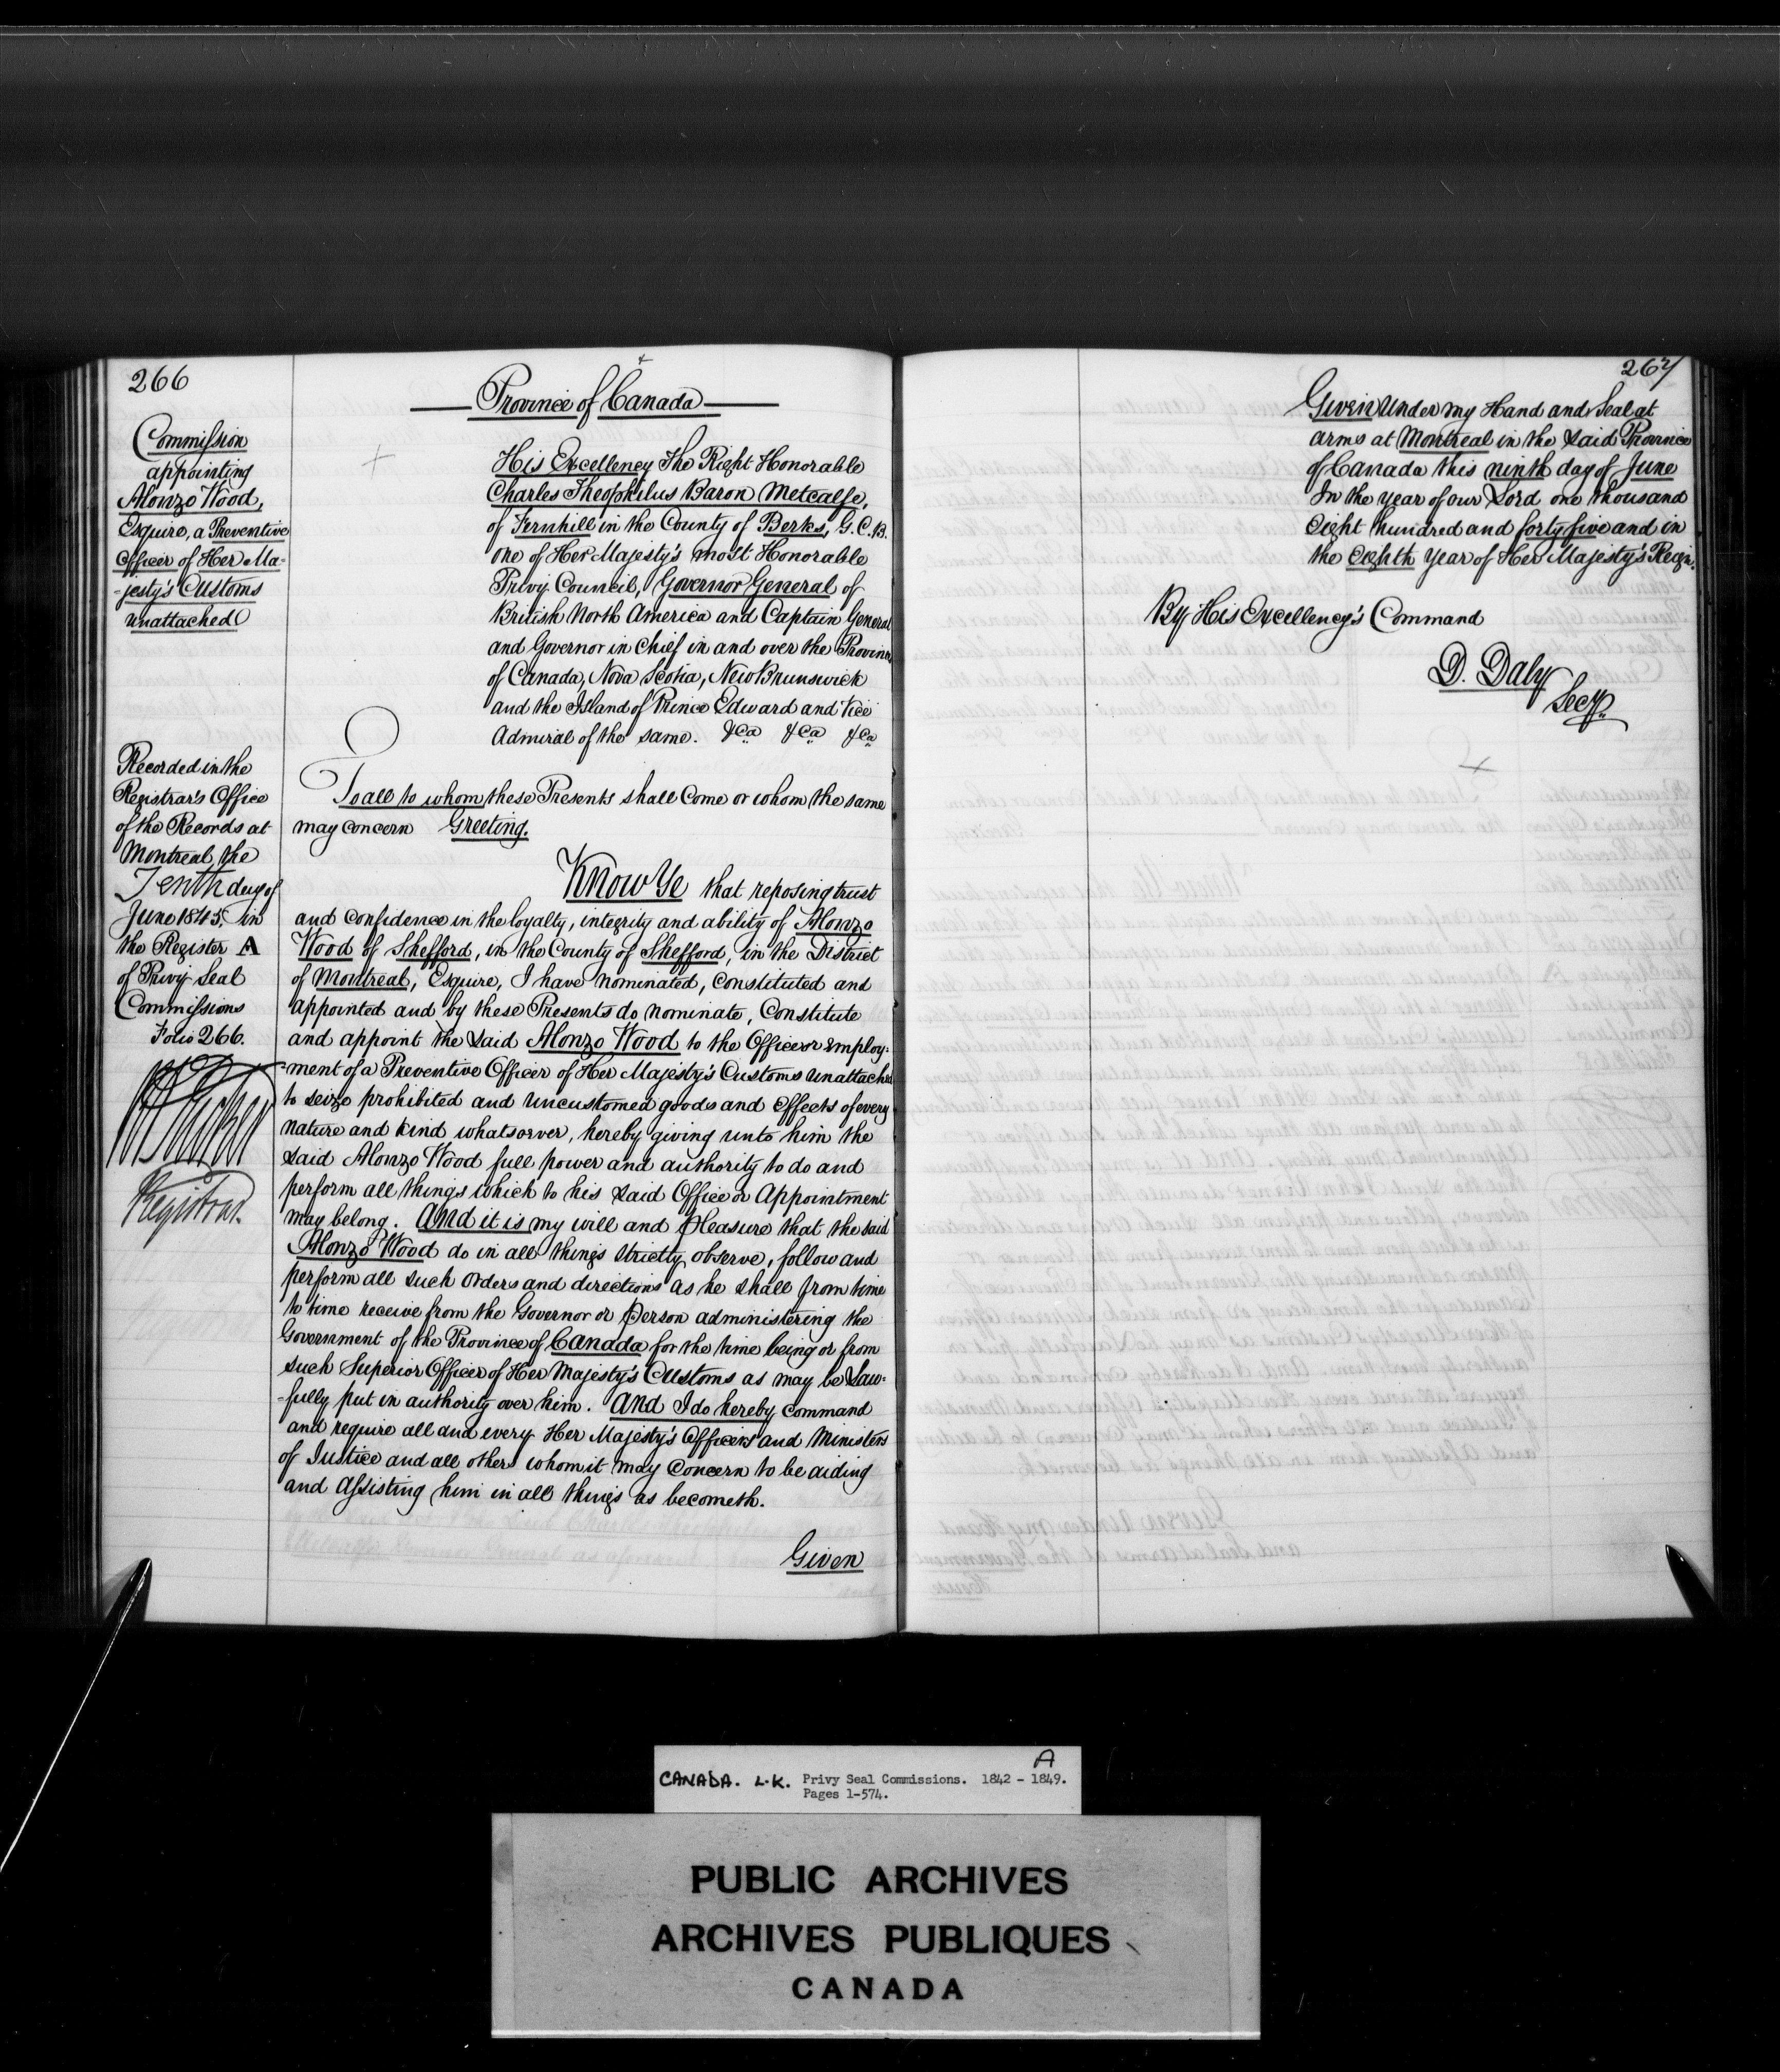 266
Commission
appointing
Alonzo Wood,
Esquire, a Preventive
Officer of Her Ma-
-jesty's Customs
unattached
Recorded in the
Registrar's Office
of the Records at
Montreal, the
Tenth day of
June 1845, in
the Register A
of Privy Seal
Commissions
Folio 266.
Registrar.
Province of Canada
His Excellency The Right Honorable
Charles Theophilus Baron Metcalfe,
of Fernhill in the County of Berks, G.C.B.
one of Her Majesty's most Honorable
Privy Council, Governor General of
British North America and Captain General
and Governor in Chief in and over the Province
of Canada, Nova Scotia, New Brunswick
and the Island of Prince Edward and Vice
Admiral of the same. &ca &ca &ca
To all to whom these Presents shall Come or whom the same
may concern Greeting.
Know Ye that reposing trust
and confidence in the loyalty, integrity and ability of Alonzo
Wood of Shefford, in the County of Shefford, in the District
of Montreal, Esquire, I have nominated, constituted and
appointed and by these Presents do nominate, Constitute
and appoint the said Alonzo Wood to the Office or Employ-
-ment of a Preventive Officer of Her Majesty's Customs unattached
to seize prohibited and uncustomed goods and effects of every
nature and kind whatsoever, hereby giving unto him the
said Alonzo Wood full power and authority to do and
perform all things which to his said Office or Appointment
may belong. And it is my will and pleasure that the said
Alonzo Wood do in all things strictly observe, follow and
perform all such orders and directions as he shall from time
to time receive from the Governor or Person administering the
Government of the Province of Canada for the time being or from
such Superior Officer of Her Majesty's Customs as may be Law-
-fully put in authority over him. And I do hereby command
and require all and every Her Majesty's Officers and Ministers
of Justice and all others whom it may Concern to be aiding
and Assisting him in all things as becometh.
Given
267
Given Under my Hand and Seal at
arms at Montreal in the said Province
of Canada this ninth day of June
In the year of our Lord one thousand
eight hundred and forty five and in
the eighth year of Her Majesty's Reign.
By His Excellency's Command
D. Daly
Secy.
A
CANADA. L.K. Privy Seal Commissions. 1842 - 1849.
Pages 1-574.
PUBLIC ARCHIVES
ARCHIVES PUBLIQUES
CANADA